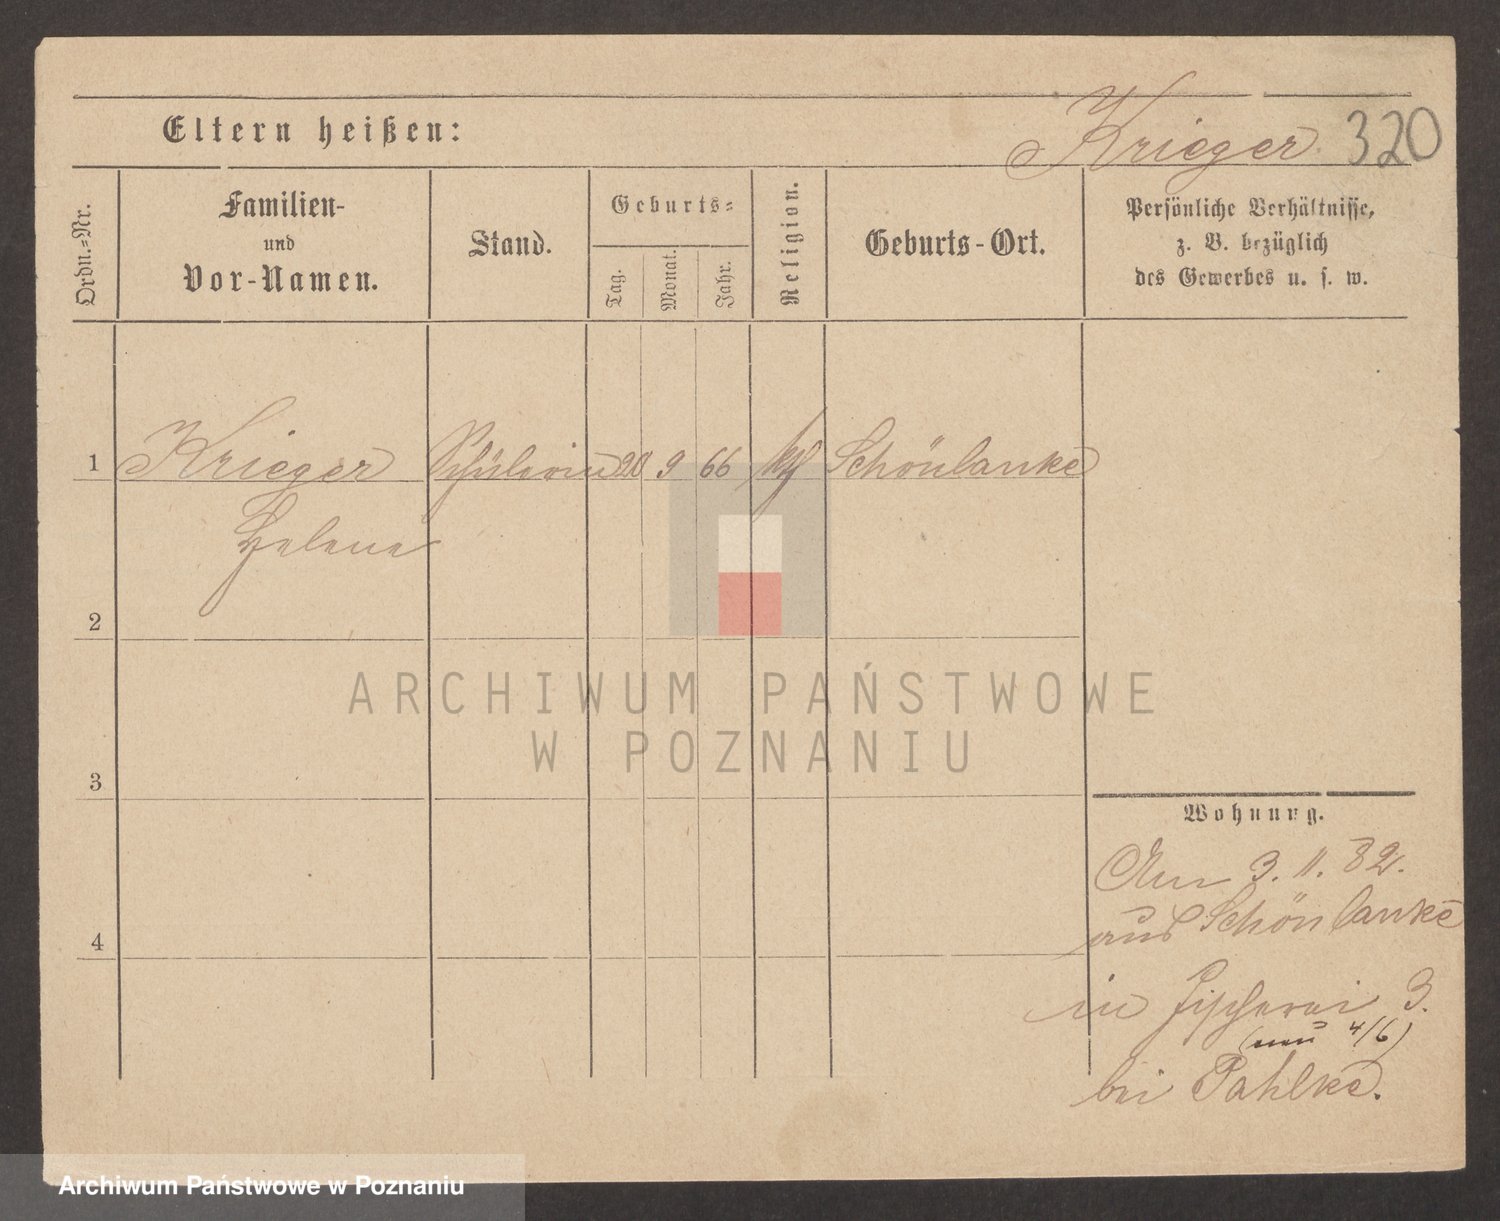 Krieger. 320
Eltern heißen:
Ordn.=Nr.
Familien-
und
Vor-Namen.
Stand.
Geburts=
Tag.
Monat.
Jahr.
Religion.
Geburts-Ort.
Persönliche Verhältnisse,
z. B. bezüglich
des Gewerbes u. s. w.
1 Krieger Schülerin 20 9 66 kth Schönlanke
Helene
2
3
4
Wohnung.
Am 3. 11. 82.
aus Schönlanke
in Fischerei 3.
(neu 4/6)
bei Pahlke.
ARCHIWUM PAŃSTWOWE
W POZNANIU
Archiwum Państwowe w Poznaniu